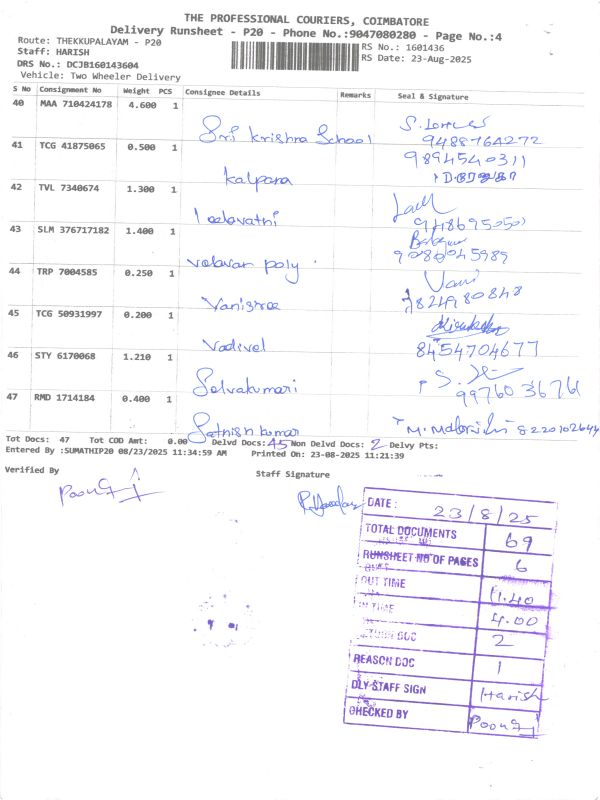 THE PROFESSIONAL COURIERS, COIMBATORE
Delivery Runsheet - P20 - Phone No.:9047080280 - Page No.:4
Route: THEKKUPALAYAM - P20 RS No.: 1601436
Staff: HARISH RS Date: 23-Aug-2025
DRS No.: DCJB160143604
Vehicle: Two Wheeler Delivery
S No Consignment No Weight PCS Consignee Details Remarks Seal & Signature
40 MAA 710424178 4.600 1
Sri Krishna School 9488764272
41 TCG 41875065 0.500 1 9894540311
Kalpana
42 TVL 7340674 1.300 1
Leelavathi
43 SLM 376717182 1.400 1
valavan poly 9080045989
44 TRP 7004585 0.250 1 Vani
Vanisree 7824980848
45 TCG 50931997 0.200 1
Vadivel 8454704677
46 STY 6170068 1.210 1
Selvakumari
47 RMD 1714184 0.400 1
Sathish kumar
Tot Docs: 47 Tot COD Amt: 0.00 Delvd Docs: 45 Non Delvd Docs: 2 Delvy Pts:
Entered By :SUMATHIP20 08/23/2025 11:34:59 AM Printed On: 23-08-2025 11:21:39
Verified By Staff Signature
DATE : 23/8/25
TOTAL DOCUMENTS 69
RUNSHEET NO OF PAGES 6
OUT TIME 11.40
IN TIME 4.00
RETURN DOC 2
REASON DOC 1
DLY STAFF SIGN Harish
CHECKED BY